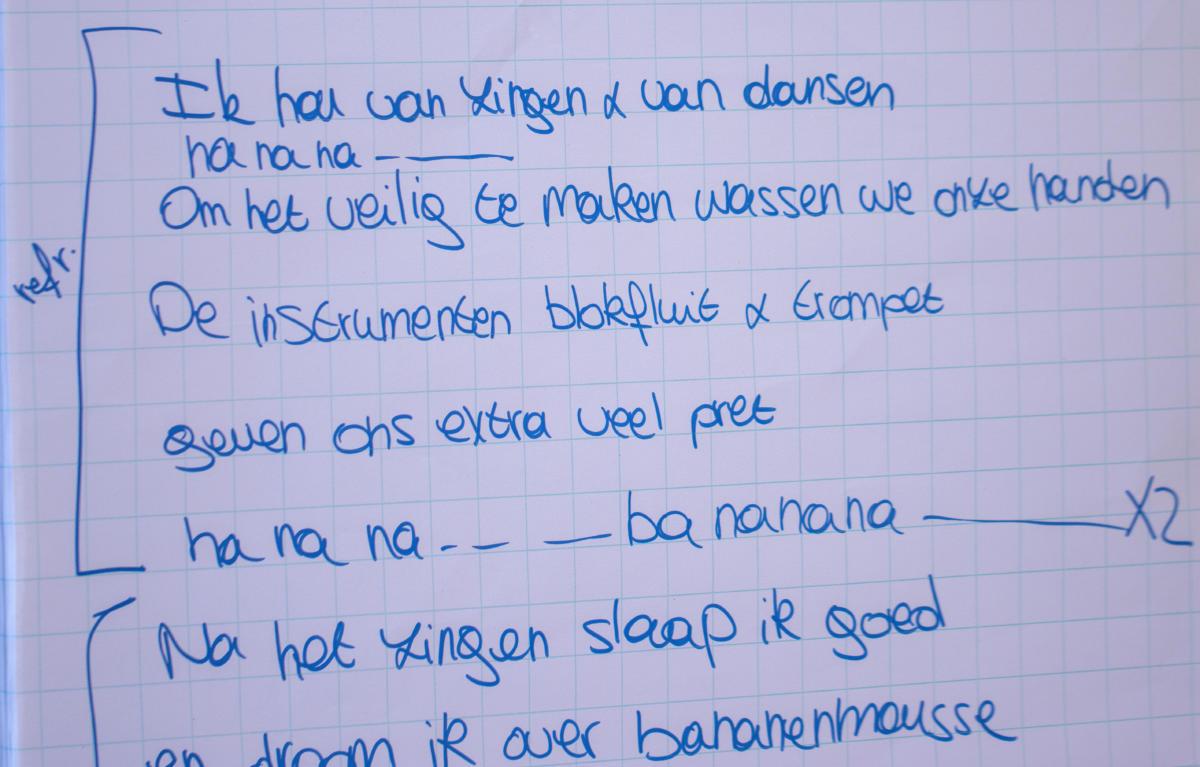 refr.
Ik hou van zingen & van dansen
na na na - ———
Om het veilig te maken wassen we onze handen
De instrumenten blokfluit & trompet
geven ons extra veel pret
na na na - - — ba nanana ——— X2
Na het zingen slaap ik goed
en droom ik over bananenmousse